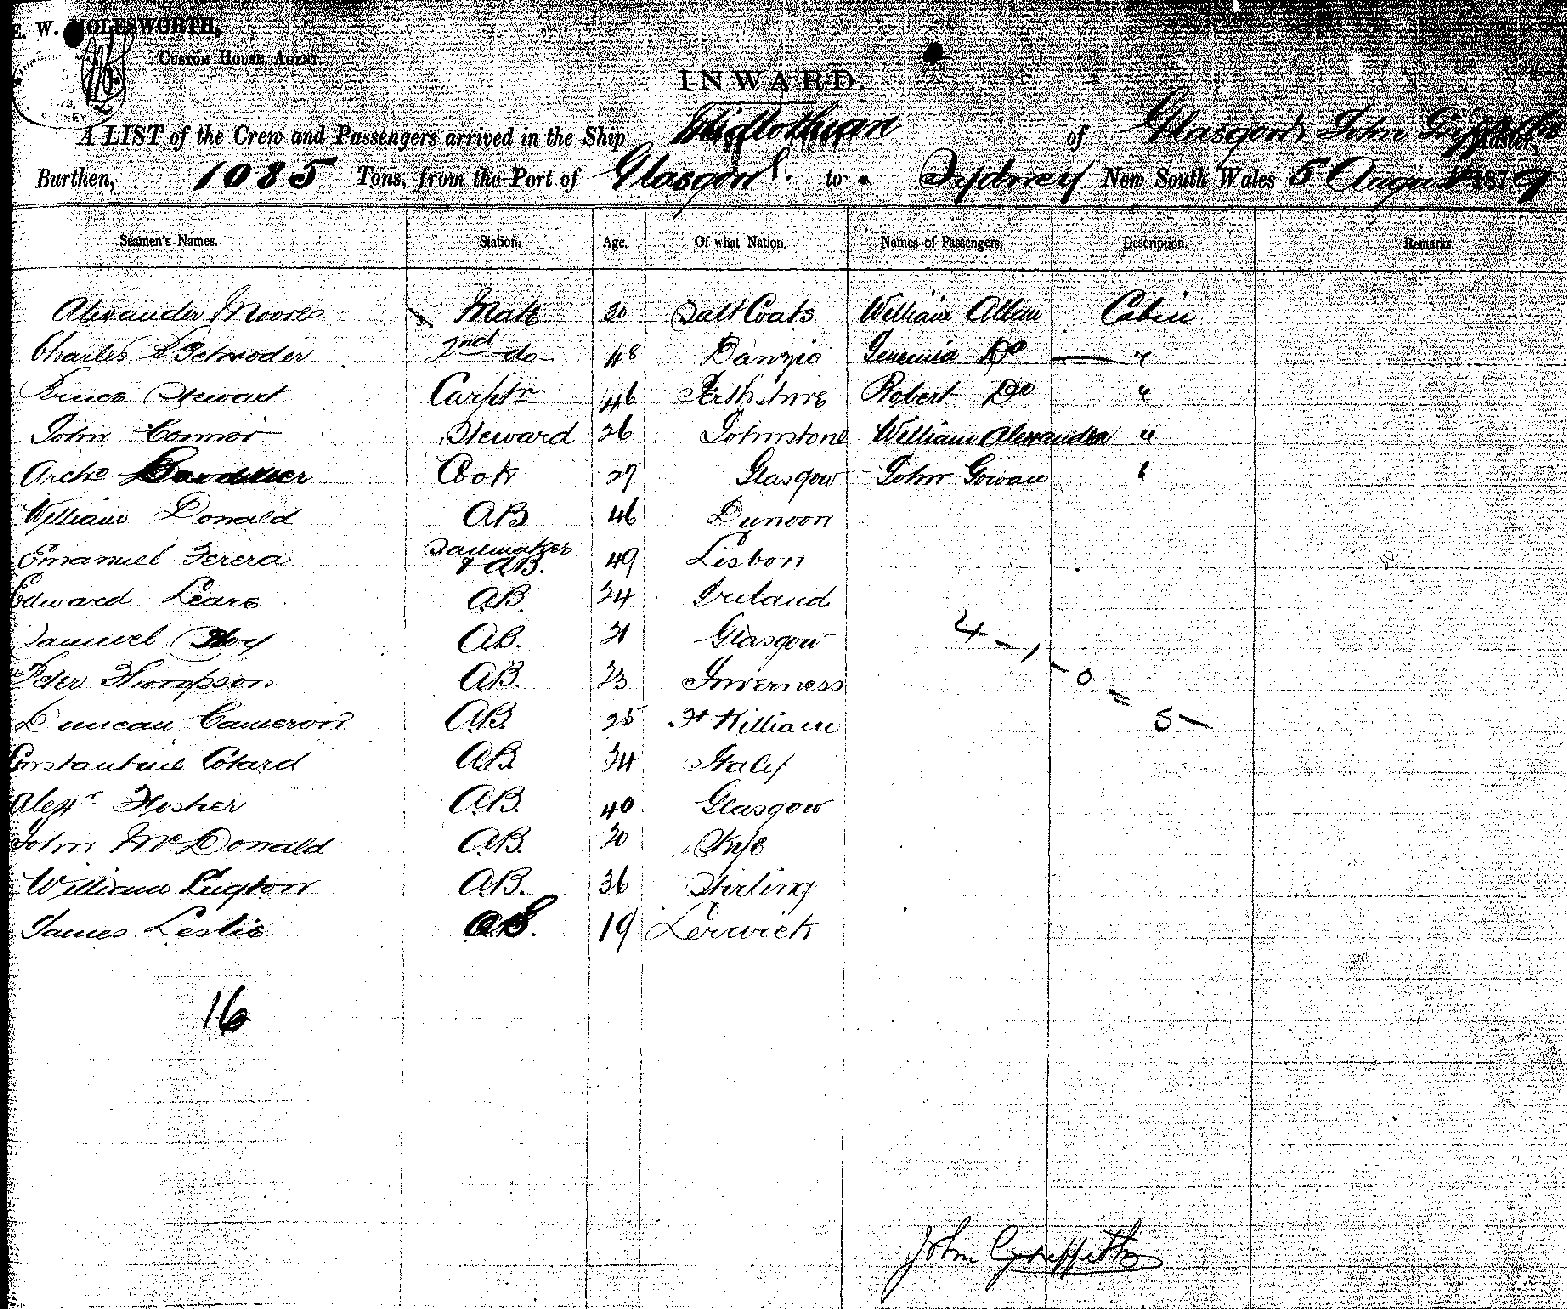 E. W. MOLESWORTH,
CUSTOM HOUSE AGENT.
INWARD.
A LIST of the Crew and Passengers arrived in the Ship Midlothian of Glasgow, John Griffiths Master,
Burthen, 1085 Tons, from the Port of Glasgow to Sydney New South Wales 5 August 1879
Seamen's Names. Station. Age. Of what Nation. Names of Passengers. Description. Remarks
Alexander Moore Mate Salt Coats William Allan Cabin
Charles Schroder 2nd do 48 Danzig Jemima Do "
Stewart Carptr 46 Perthshire Robert Do "
John Connor Steward 26 Johnstone William Alexander "
Arch Gardner Cook 27 Glasgow John Gowan "
William Donald AB 46 Dunoon
Emanuel Ferera Sailmaker & AB. 49 Lisbon
Edward Lears AB. 24 Ireland
Samuel Hoy AB. Glasgow
Peter Thompson AB. 23 Inverness
Duncan Cameron AB. 25 Ft William
Constantine Cotard AB. 34 Italy
Alexr Flesher AB. 40 Glasgow
John McDonald AB. 30 Skye
William Lugton AB. 36 Stirling
James Leslie OS. 19 Lerwick
4 - 1 - 0 = 5 -
16
John Griffiths